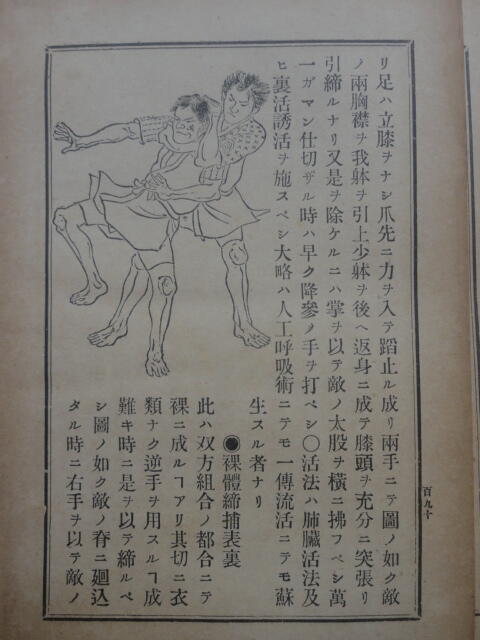 リ足ハ立膝ヲナシ爪先ニ力ヲ入テ蹈止ル成リ兩手ニテ圖ノ如ク敵
ノ兩胸襟ヲ我躰ヲ引上少躰ヲ後ヘ返身ニ成テ膝頭ヲ充分ニ突張リ
引締ルナリ又是ヲ除ケルニハ掌ヲ以テ敵ノ太股ヲ橫ニ拂フベシ萬
一ガマン仕切ザル時ハ早ク降參ノ手ヲ打ベシ〇活法ハ肺臓活法及
ヒ裏活誘活ヲ施スベシ大略ハ人工呼吸術ニテモ一傳流活ニテモ蘇
生スル者ナリ
◉裸體締捕表裏
此ハ双方組合ノ都合ニテ
裸ニ成ルヿアリ其切ニ衣
類ナク逆手ヲ用スルヿ成
難キ時ニ是ヲ以テ締ルベ
シ圖ノ如ク敵ノ脊ニ廻込
タル時ニ右手ヲ以テ敵ノ
百九十